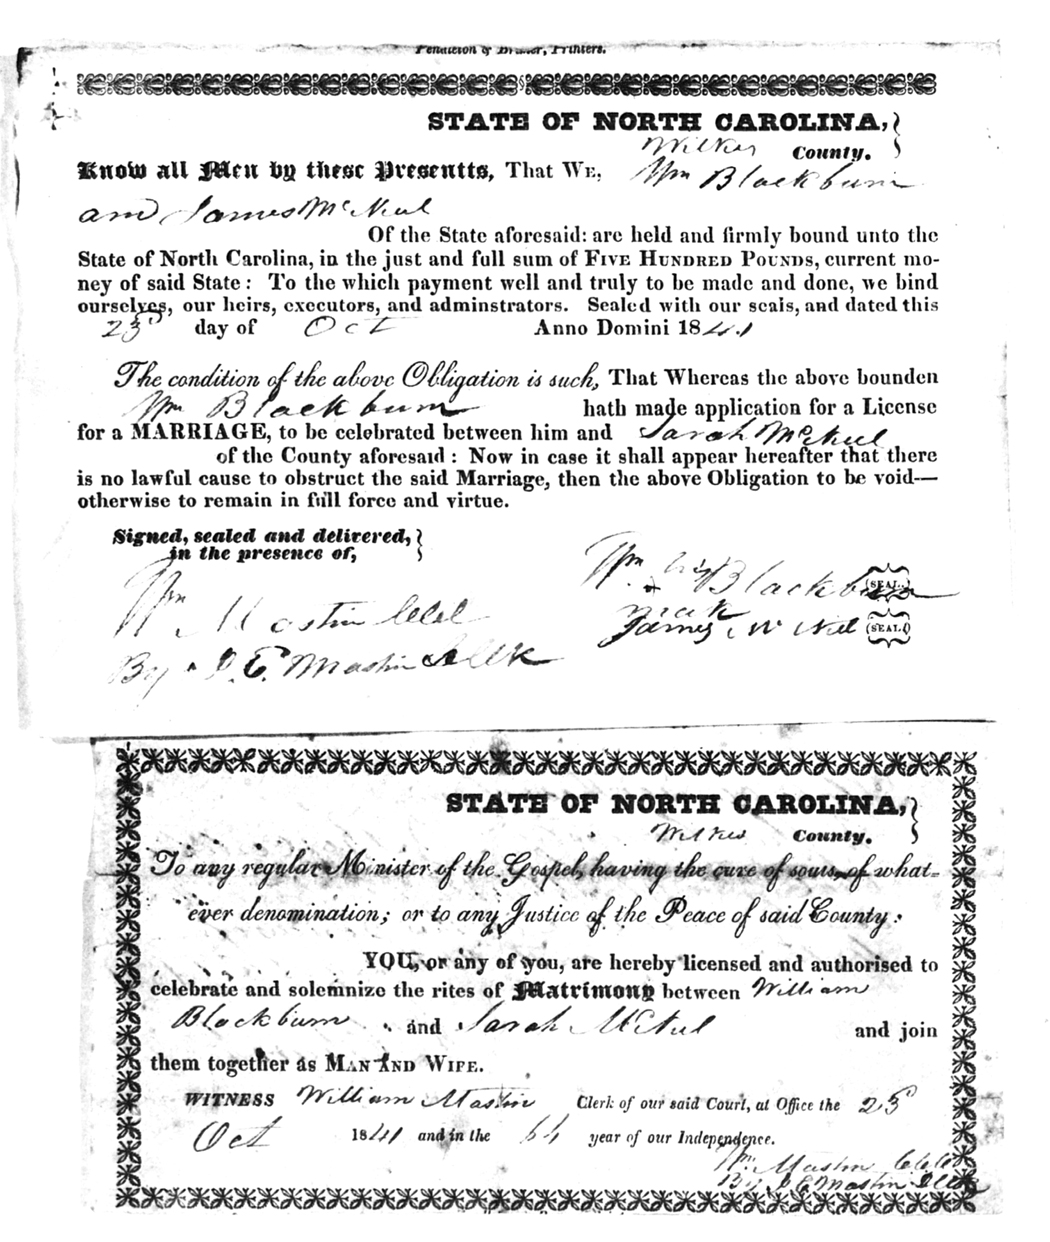 Pendleton & Bruner, Printers.
STATE OF NORTH CAROLINA,
Wilkes County.
Know all Men by these Presentts, That We, Wm Blackburn
and James McNeil
Of the State aforesaid: are held and firmly bound unto the
State of North Carolina, in the just and full sum of Five Hundred Pounds, current mo-
ney of said State: To the which payment well and truly to be made and done, we bind
ourselves, our heirs, executors, and adminstrators. Sealed with our seals, and dated this
23d day of Oct Anno Domini 1841
The condition of the above Obligation is such, That Whereas the above bounden
Wm Blackburn hath made application for a License
for a MARRIAGE, to be celebrated between him and Sarah McNeil
of the County aforesaid: Now in case it shall appear hereafter that there
is no lawful cause to obstruct the said Marriage, then the above Obligation to be void—
otherwise to remain in full force and virtue.
Signed, sealed and delivered,
in the presence of,
Wm his Blackburn (SEAL.)
mark
Wm Mastin
James McNeil (SEAL.)
By Mastin
STATE OF NORTH CAROLINA,
Wilkes County.
To any regular Minister of the Gospel, having the cure of souls, of what-
ever denomination; or to any Justice of the Peace of said County:
YOU, or any of you, are hereby licensed and authorised to
celebrate and solemnize the rites of Matrimony between William
Blackburn and Sarah McNeil and join
them together as Man And Wife.
WITNESS William Mastin Clerk of our said Court, at Office the 23d
Oct 1841 and in the year of our Independence.
Wm. Mastin
By Mastin